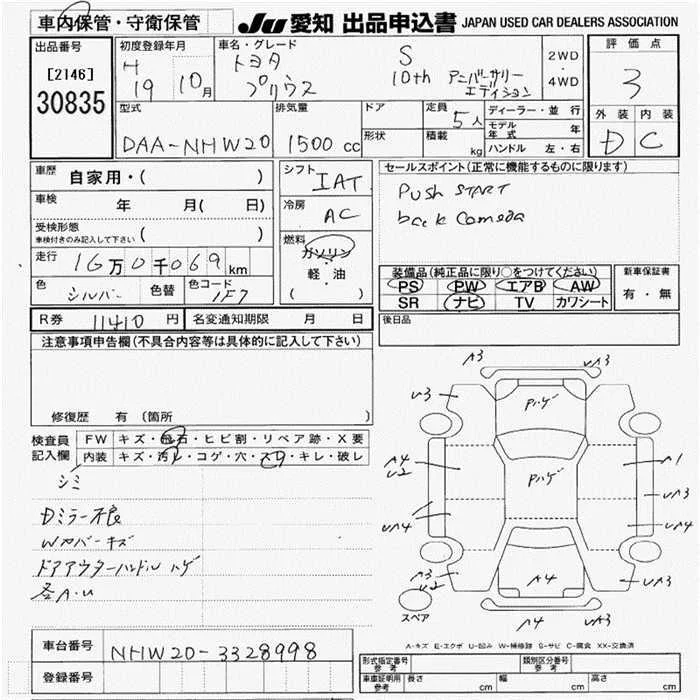 車内保管・守衛保管
JU 愛知 出品申込書 JAPAN USED CAR DEALERS ASSOCIATION
出品番号
[2146]
30835
初度登録年月
H
19 10月
車名・グレード
トヨタ S
プリウス 10th アニバーサリー
エディション
2WD
・
4WD
評価点
3
外装 内装
D C
型式
DAA-NHW20
排気量
1500 cc
ドア
形状
定員
5人
積載
kg
ディーラー・並行
モデル年式 年
ハンドル 左・右
車歴 自家用・( )
車検 年 月( 日)
受検形態
車検付きのみ記入して下さい ( )
走行 16万0千069km
色 シルバー 色替 色コード 1F7
シフト IAT
冷房 AC
燃料
ガソリン
軽・油
( )
セールスポイント(正常に機能するものに限ります)
Push START
back Camera
装備品(純正品に限り○をつけてください)
PS PW エアB AW
SR ナビ TV カワシート
新車保証書
有・無
R券 11410 円 名変通知期限 月 日
後日品
注意事項申告欄(不具合内容等は具体的に記入して下さい)
修復歴 有〔箇所 〕
検査員
記入欄
FW キズ・飛石・ヒビ割・リペア跡・X要
内装 キズ・汚レ・コゲ・穴・スレ・キレ・破レ
シミ
Dミラー不良
Wカバーキズ
ドアアウターハンドル ハゲ
各A.U
A3 UA3
U3 Pハゲ
A4
U2 Pハゲ A1
UA3
UA4 UA4
A3
U2 A4 UA3
スペア A4 UA3
A-キズ E-エクボ U-凹み W-補修跡 S-サビ C-腐食 XX-交換済
車台番号 NHW20-3328998
登録番号
形式指定番号
参考
類別区分番号
参考
車庫証明用
参考
長さ cm 幅 cm 高さ cm